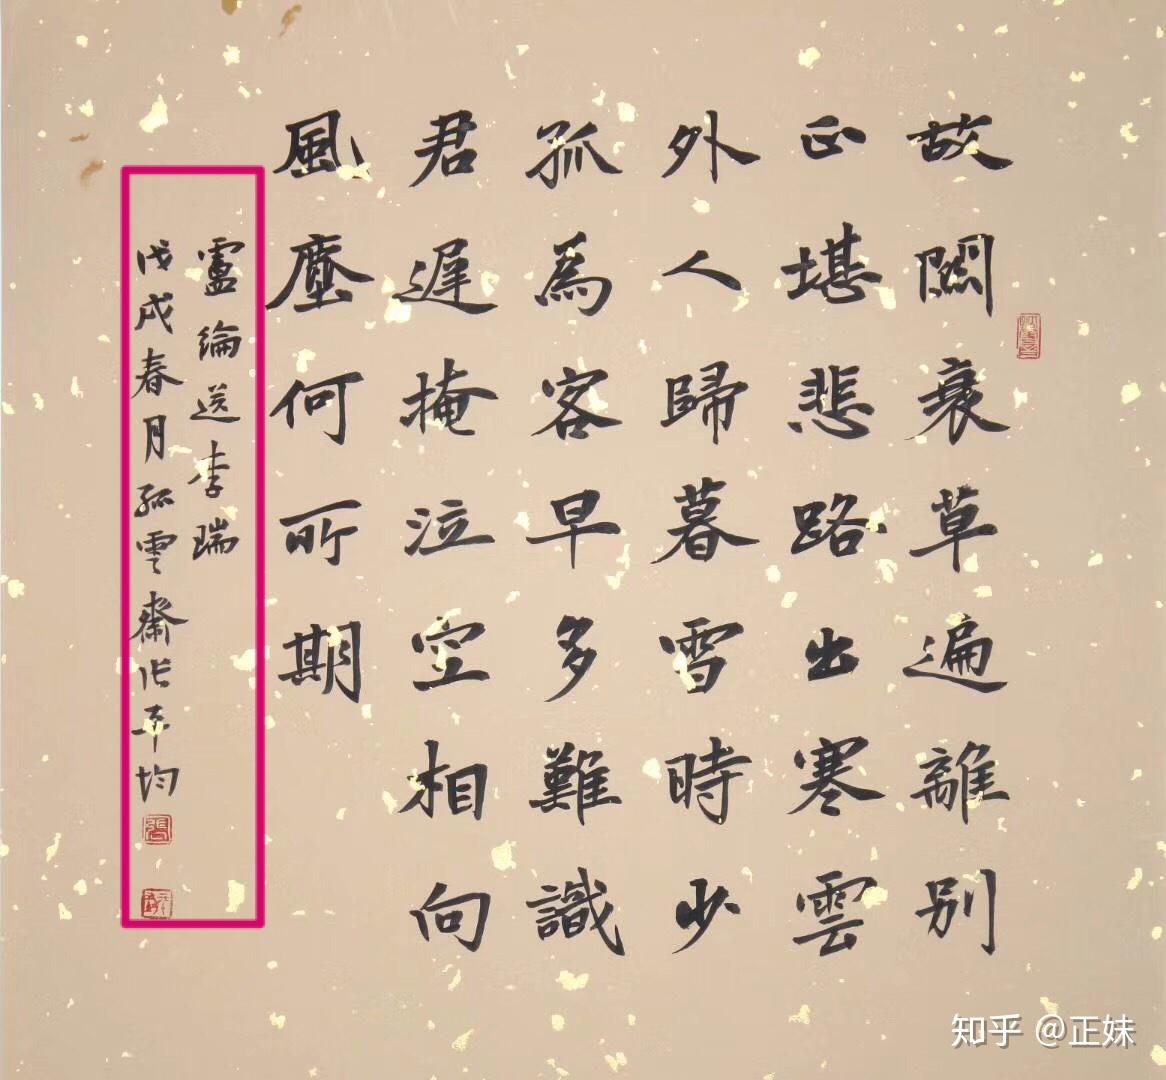 故關衰草遍離別
正堪悲路出寒雲
外人歸暮雪時少
孤為客早多難識
君遲掩泣空相向
風塵何所期
盧綸送李瑞
戊戌春月孤雲齋作平均
知乎 @正妹